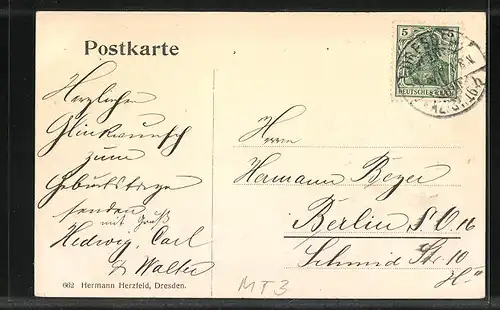 Postkarte
5
DEUTSCHES REICH
DRESDEN
Herzlichen
Glückwunsch
zum
Geburtstage
senden
mit Gruß
Hedwig, Carl
& Walter
Herrn
Hermann Beyer
Berlin S.O. 16
Schmid Str. 10
662 Hermann Herzfeld, Dresden.
MT3